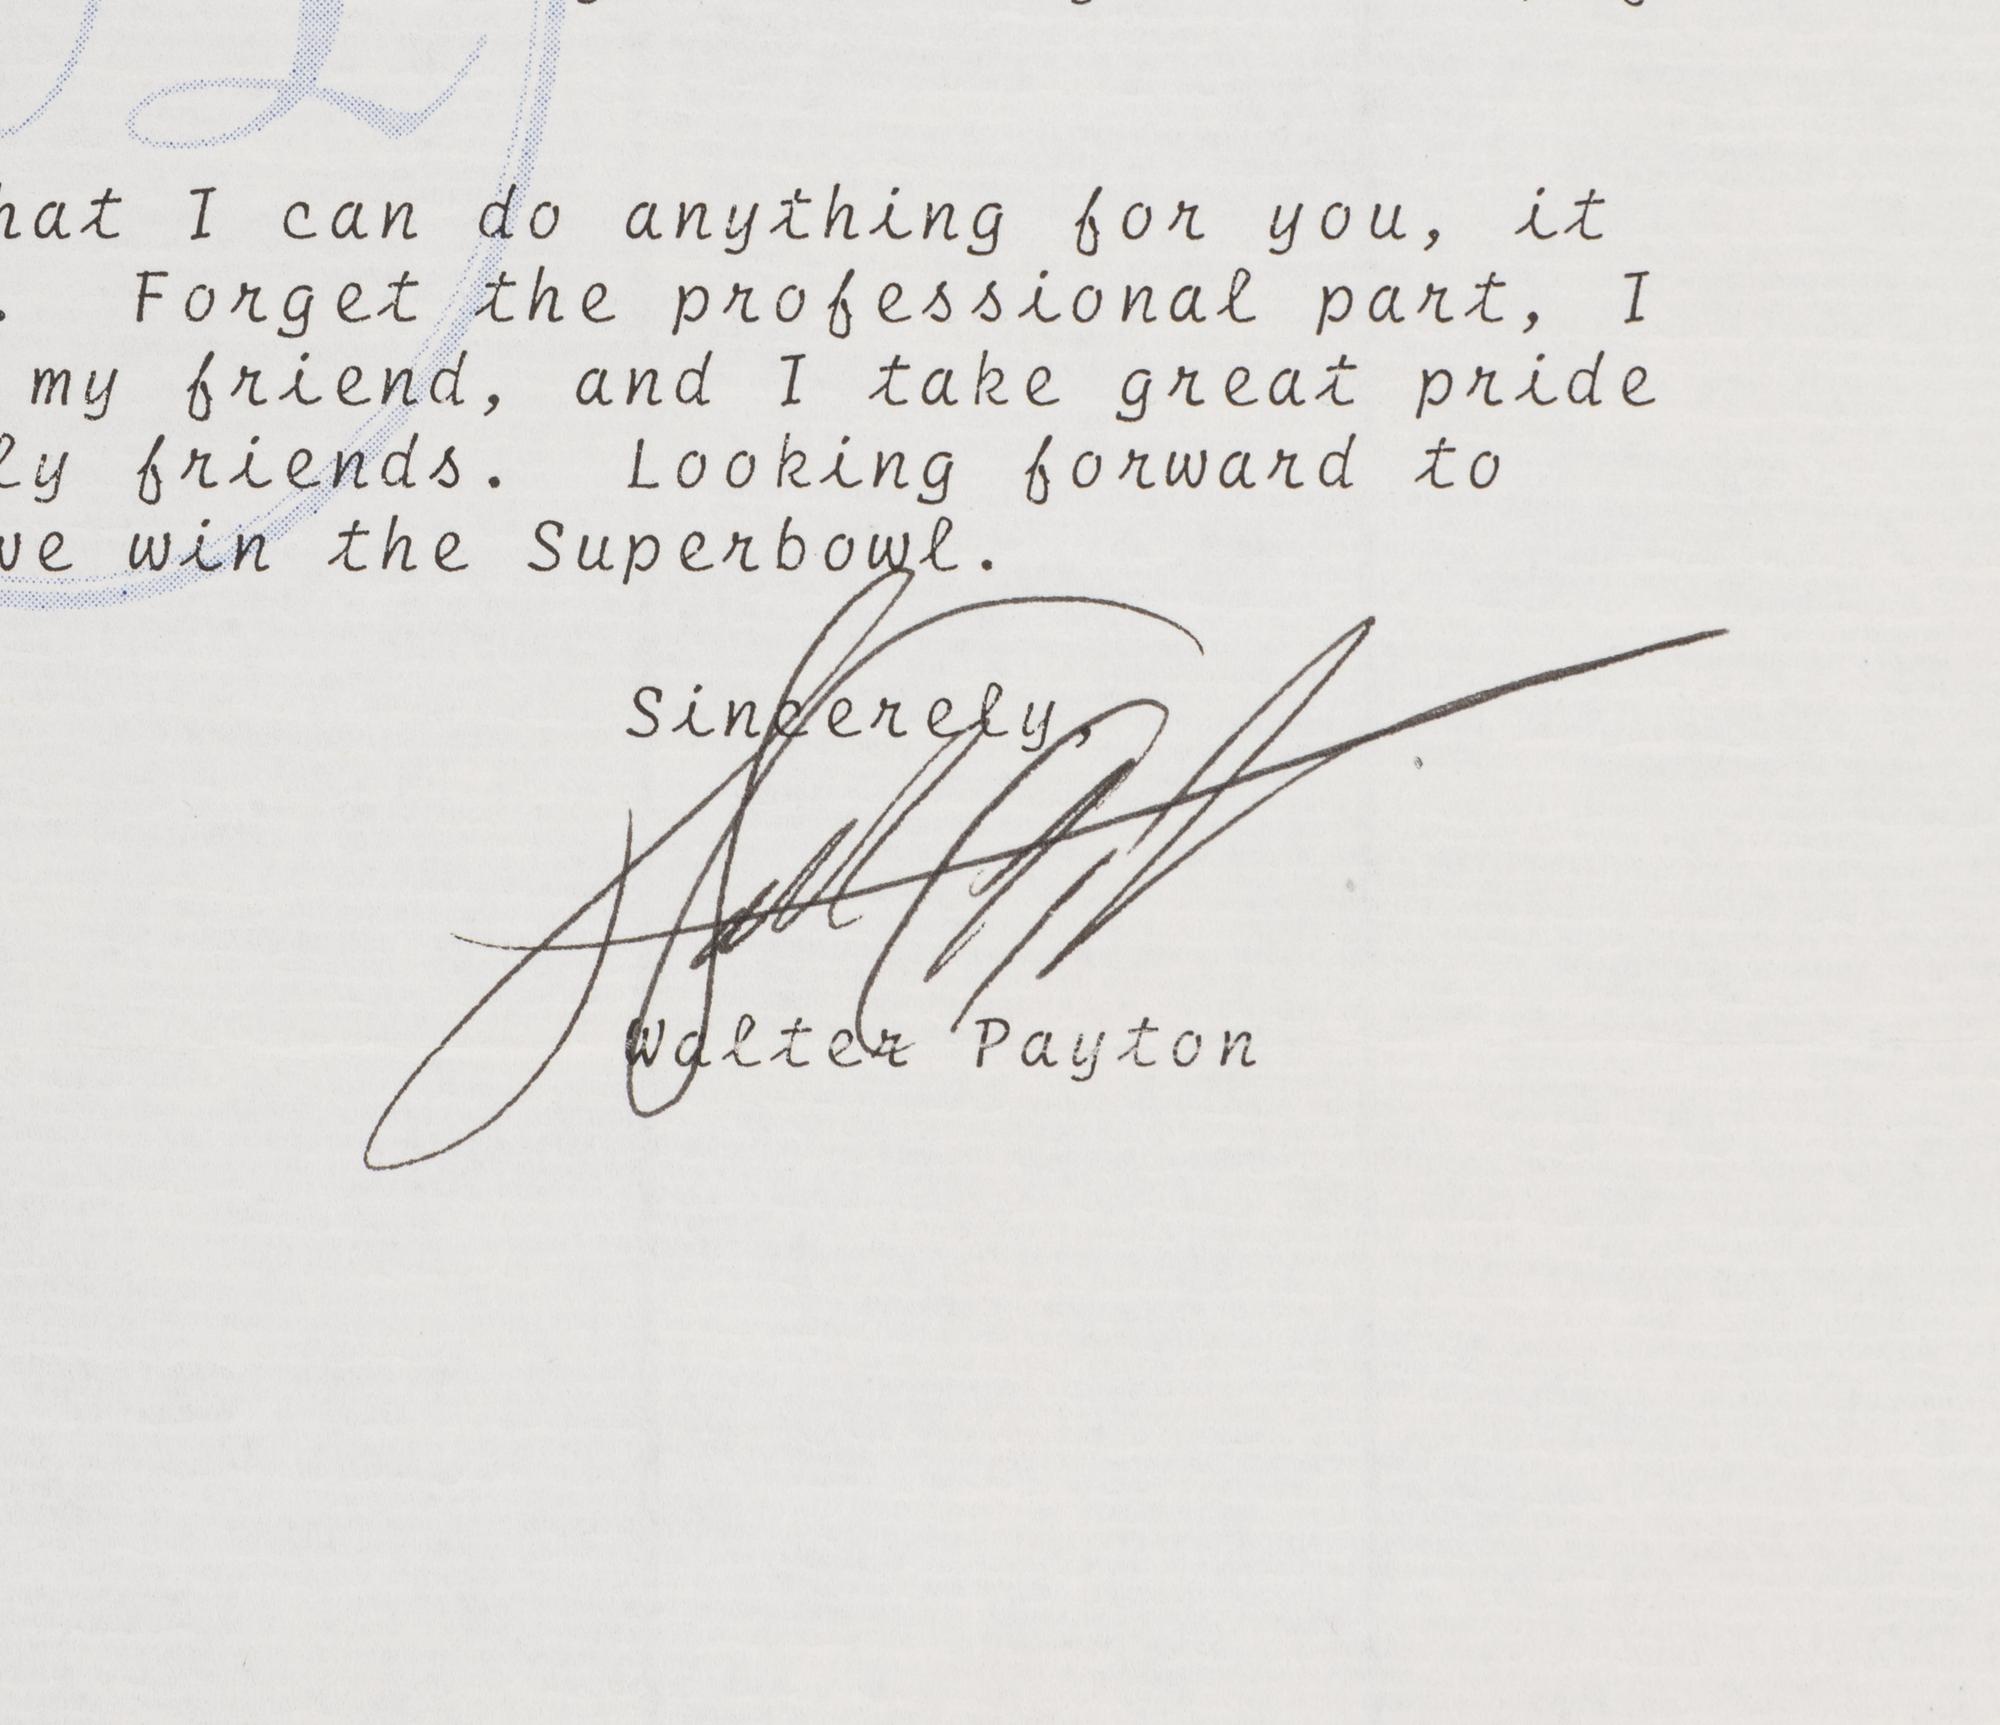 hat I can do anything for you, it
. Forget the professional part, I
my friend, and I take great pride
ly friends. Looking forward to
we win the Superbowl.
Sincerely,
Walter Payton